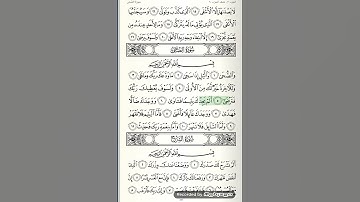 لَا يَصْلَىٰهَآ إِلَّا ٱلْأَشْقَى ١٥ ٱلَّذِى كَذَّبَ وَتَوَلَّىٰ ١٦ وَسَيُجَنَّبُهَا
ٱلْأَتْقَى ١٧ ٱلَّذِى يُؤْتِى مَالَهُۥ يَتَزَكَّىٰ ١٨ وَمَا لِأَحَدٍ عِندَهُۥ مِن
نِّعْمَةٍ تُجْزَىٰٓ ١٩ إِلَّا ٱبْتِغَآءَ وَجْهِ رَبِّهِ ٱلْأَعْلَىٰ ٢٠ وَلَسَوْفَ يَرْضَىٰ ٢١
سُورَةُ الضُّحَىٰ
بِسْمِ ٱللَّهِ ٱلرَّحْمَٰنِ ٱلرَّحِيمِ
وَٱلضُّحَىٰ ١ وَٱلَّيْلِ إِذَا سَجَىٰ ٢ مَا وَدَّعَكَ رَبُّكَ وَمَا قَلَىٰ
٣ وَلَلْـَٔاخِرَةُ خَيْرٌ لَّكَ مِنَ ٱلْأُولَىٰ ٤ وَلَسَوْفَ يُعْطِيكَ رَبُّكَ
فَتَرْضَىٰٓ ٥ أَلَمْ يَجِدْكَ يَتِيمًا فَـَٔاوَىٰ ٦ وَوَجَدَكَ ضَآلًّا
فَهَدَىٰ ٧ وَوَجَدَكَ عَآئِلًا فَأَغْنَىٰ ٨ فَأَمَّا ٱلْيَتِيمَ فَلَا تَقْهَرْ
٩ وَأَمَّا ٱلسَّآئِلَ فَلَا تَنْهَرْ ١٠ وَأَمَّا بِنِعْمَةِ رَبِّكَ فَحَدِّثْ ١١
سُورَةُ الشَّرْحِ
بِسْمِ ٱللَّهِ ٱلرَّحْمَٰنِ ٱلرَّحِيمِ
أَلَمْ نَشْرَحْ لَكَ صَدْرَكَ ١ وَوَضَعْنَا عَنكَ وِزْرَكَ ٢ ٱلَّذِىٓ